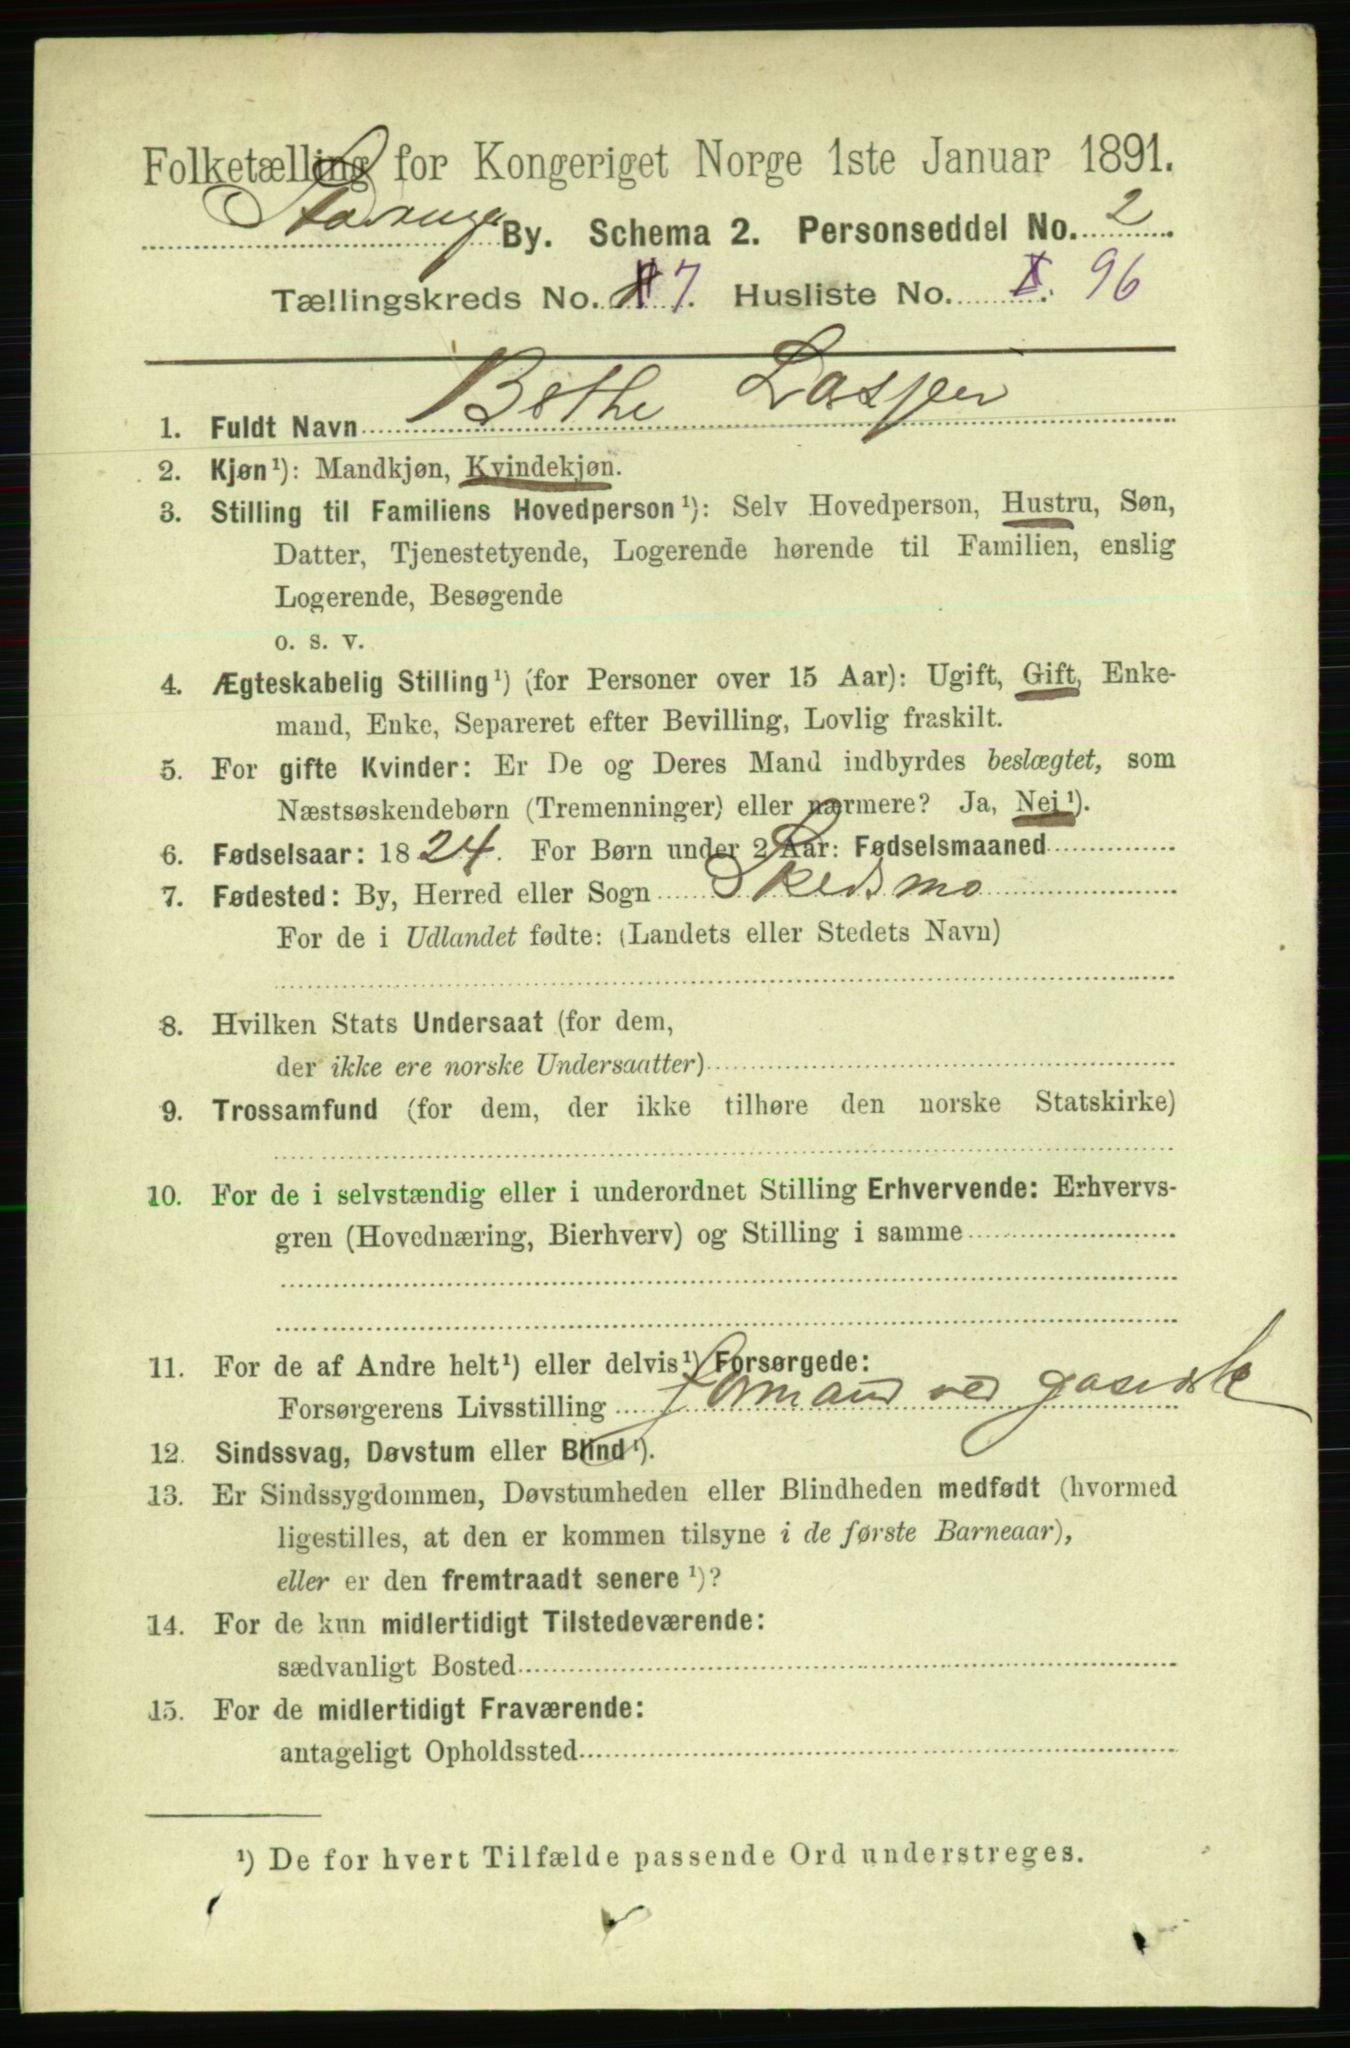 Folketælling for Kongeriget Norge 1ste Januar 1891.
Stavanger By. Schema 2. Personseddel No. 2.
Tællingskreds No. 7. Husliste No. 96
1. Fuldt Navn Bethe Lasper
2. Kjøn¹): Mandkjøn, Kvindekjøn.
3. Stilling til Familiens Hovedperson¹): Selv Hovedperson, Hustru, Søn,
Datter, Tjenestetyende, Logerende hørende til Familien, enslig
Logerende, Besøgende
o. s. v.
4. Ægteskabelig Stilling¹) (for Personer over 15 Aar): Ugift, Gift, Enke-
mand, Enke, Separeret efter Bevilling, Lovlig fraskilt.
5. For gifte Kvinder: Er De og Deres Mand indbyrdes beslægtet, som
Næstsøskendebørn (Tremenninger) eller nærmere? Ja, Nei¹).
6. Fødselsaar: 1824. For Børn under 2 Aar: Fødselsmaaned
7. Fødested: By, Herred eller Sogn Skedsmo
For de i Udlandet fødte: (Landets eller Stedets Navn)
8. Hvilken Stats Undersaat (for dem,
der ikke ere norske Undersaatter)
9. Trossamfund (for dem, der ikke tilhøre den norske Statskirke)
10. For de i selvstændig eller i underordnet Stilling Erhvervende: Erhvervs-
gren (Hovednæring, Bierhverv) og Stilling i samme
11. For de af Andre helt¹) eller delvis¹) Forsørgede:
Forsørgerens Livsstilling Formand ved
12. Sindssvag, Døvstum eller Blind¹).
13. Er Sindssygdommen, Døvstumheden eller Blindheden medfødt (hvormed
ligestilles, at den er kommen tilsyne i de første Barneaar),
eller er den fremtraadt senere¹)?
14. For de kun midlertidigt Tilstedeværende:
sædvanligt Bosted
15. For de midlertidigt Fraværende:
antageligt Opholdssted
¹) De for hvert Tilfælde passende Ord understreges.